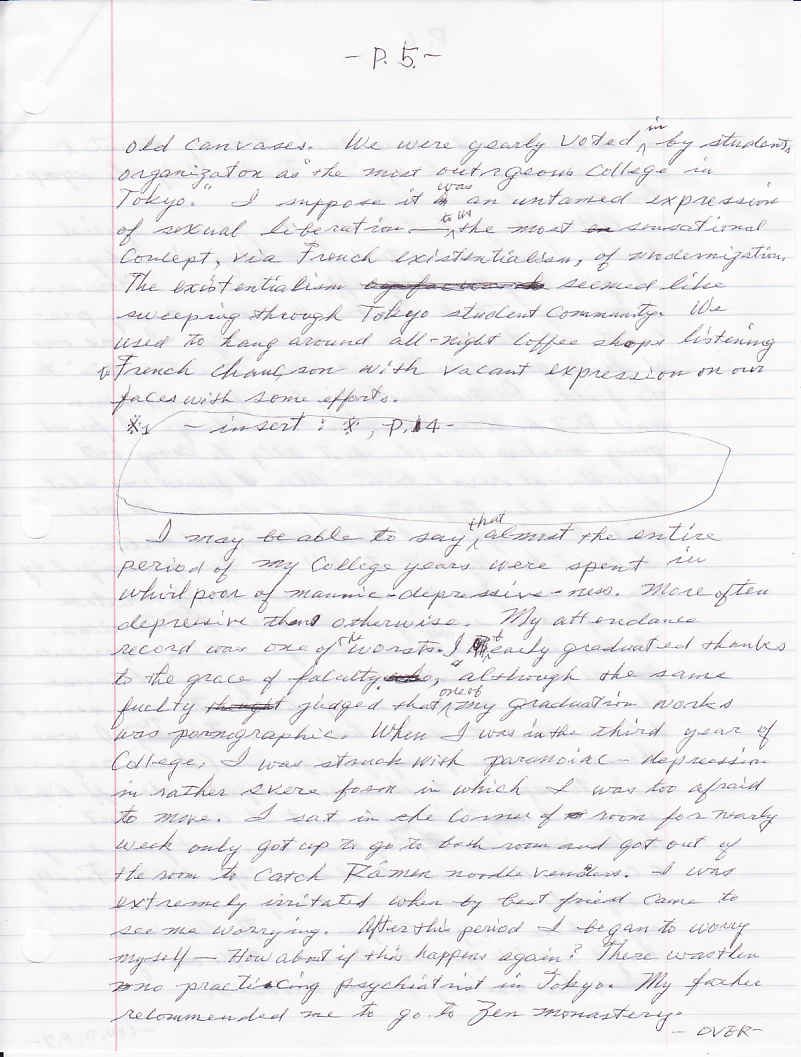 - P. 5. -
old canvases. We were yearly voted in by students
organizaton as "the most outrgeous College in
Tokyo." I suppose it was an untamed expression
of sexual liberation — to us the most sensational
Concept, via French existentialism, of modernization.
The existentialism seemed like
sweeping through Tokyo student Community. We
used to hang around all-night Coffee shops listening
to French chanson with vacant expression on our
faces with some efforts.
※1 - insert : ※, P. 14 -
I may be able to say that almost the entire
period of my College years were spent in
whirl poor of mannic-depressive-ness. More often
depressive than otherwise. My attendance
record was one of the worsts. I early graduated thanks
to the grace of faculty, although the same
faculty judged that one of my graduation works
was pornographic. When I was in the third year of
College, I was struck with paranoiac - depression
in rather svere form in which I was too afraid
to move. I sat in the corner of room for nearly
week only got up to go to bath room and got out of
the room to catch Rámen noodle venders. I was
extremely irritated when by best friend came to
see me worrying. After this period I began to worry
myself — How about if this happens again? There was then
no practicing psychiatrist in Tokyo. My father
recommended me to go to Zen monastery.
- OVER -